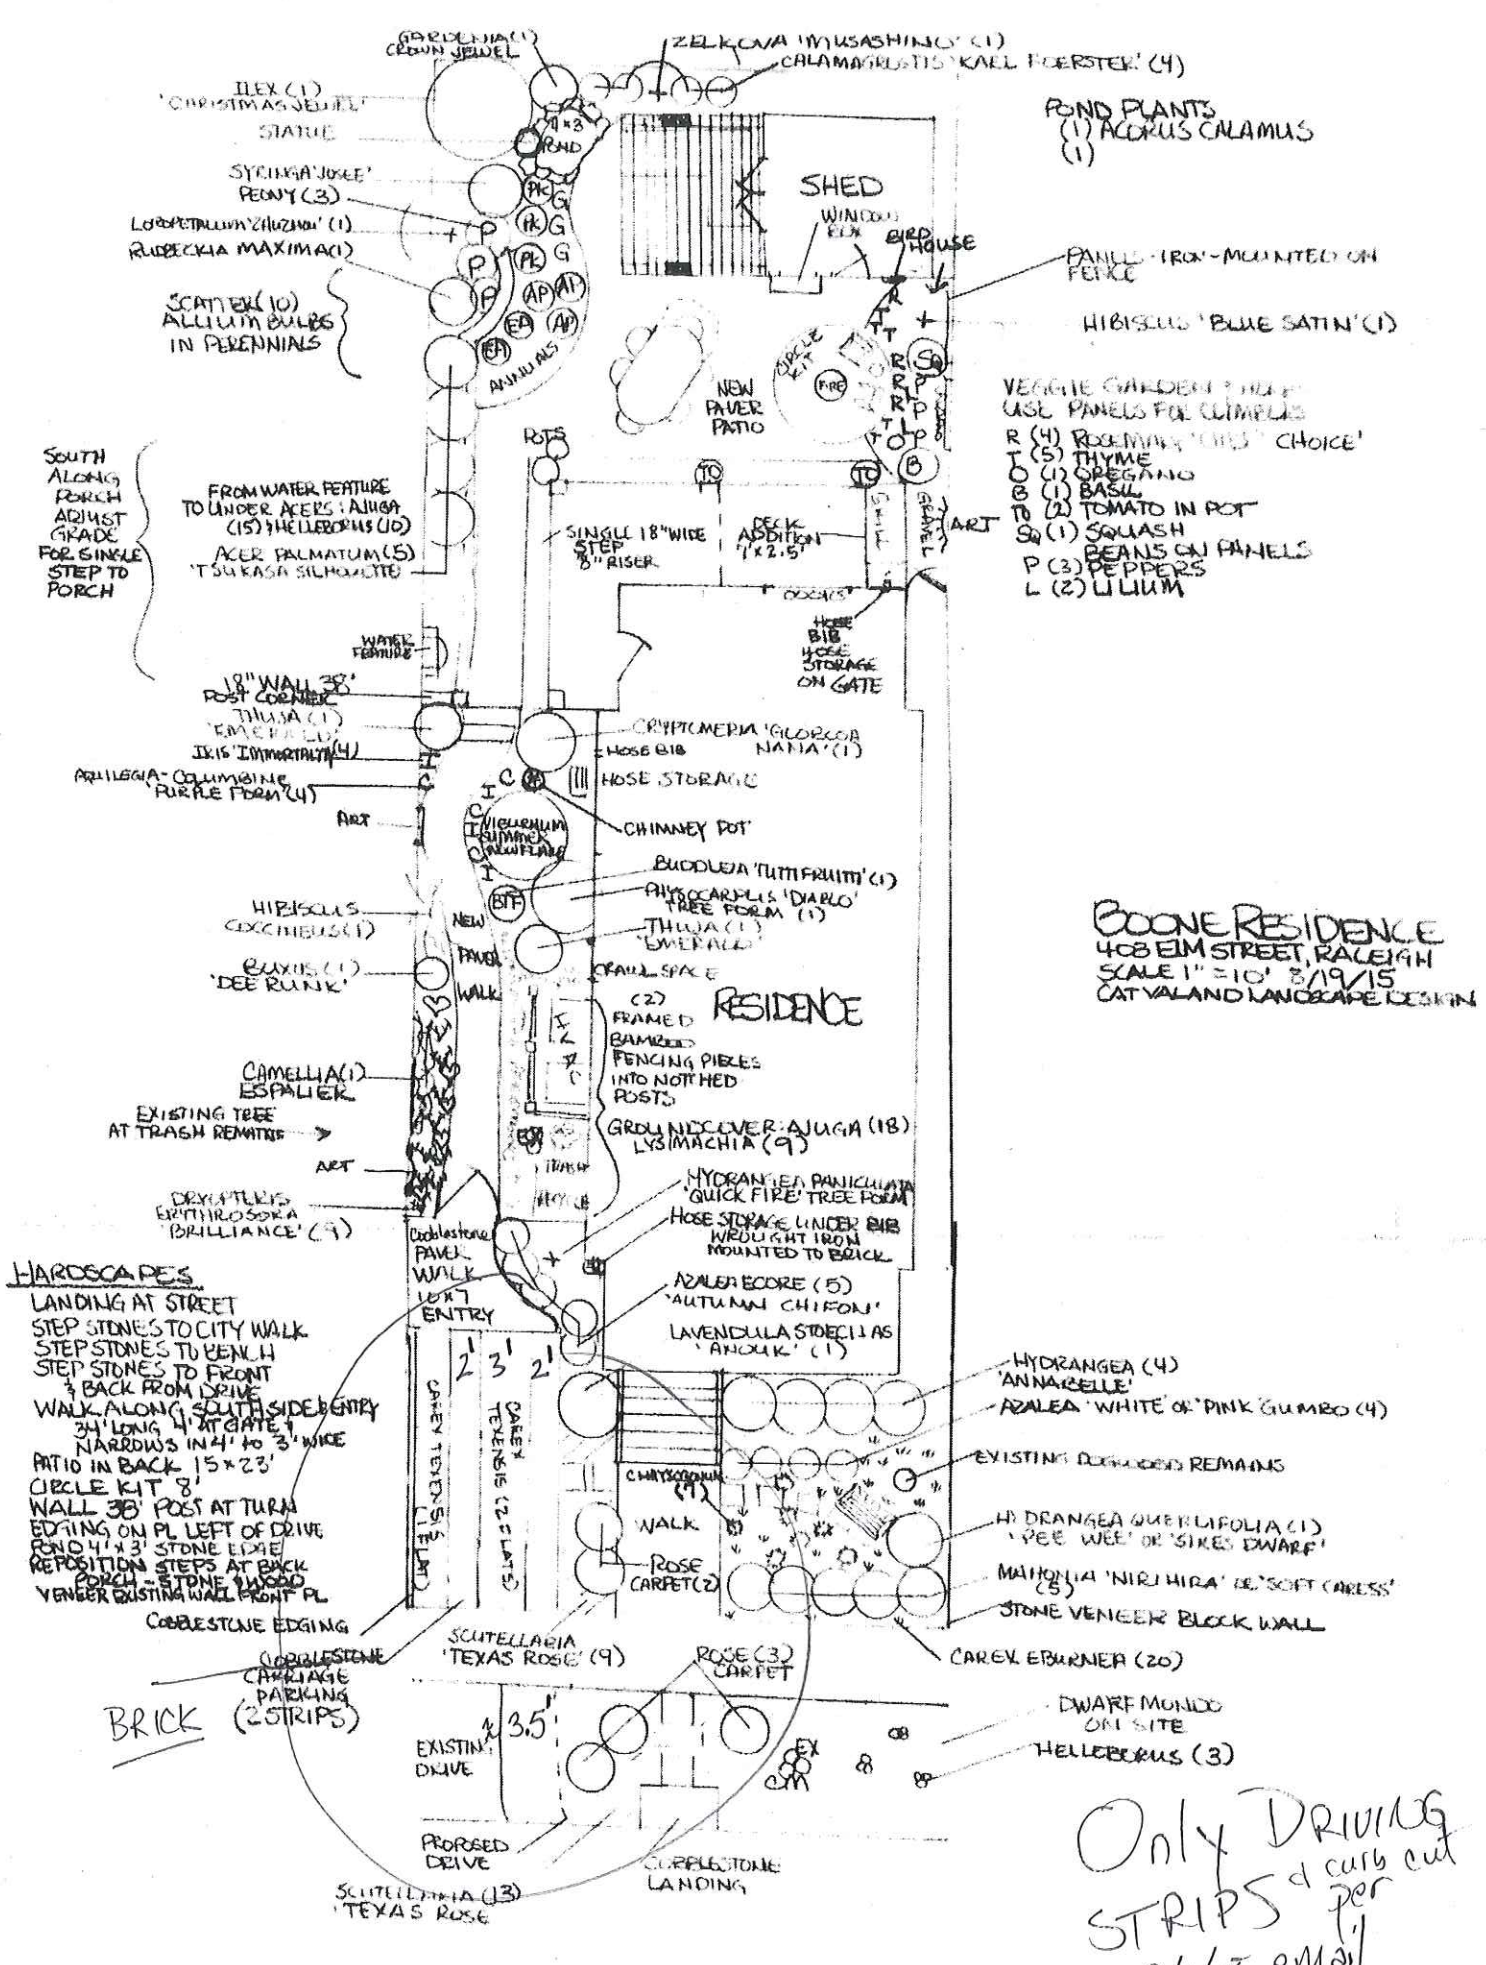 GARDENIA (1)
CROWN JEWEL
ZELKOVA 'MUSASHINO' (1)
CALAMAGROSTIS 'KARL FOERSTER' (4)
ILEX (1)
'CHRISTMAS JEWEL'
STATUE
4x3
POND
POND PLANTS
(1) ACORUS CALAMUS
(1)
SYRINGA 'JOSEE'
PEONY (3)
LOROPETALUM 'ZHUZHOU' (1)
RUDBECKIA MAXIMA (1)
SCATTER (10)
ALLIUM BULBS
IN PERENNIALS
PK G
PK G
PK G
P
P
P
AP AP
EA AP
EA
ANNUALS
SHED
WINDOW
BOX
BIRD
HOUSE
PANELS - IRON - MOUNTED ON
FENCE
HIBISCUS 'BLUE SATIN' (1)
CIRCLE
KIT
FIRE
NEW
PAVER
PATIO
SQ
B
VEGGIE GARDEN
USE PANELS FOR CLIMBERS
R (4) ROSEMARY CHOICE'
T (5) THYME
O (1) OREGANO
B (1) BASIL
TO (2) TOMATO IN POT
SQ (1) SQUASH
BEANS ON PANELS
P (3) PEPPERS
L (2) LILIUM
POTS
TO
TO
SOUTH
ALONG
PORCH
ADJUST
GRADE
FOR SINGLE
STEP TO
PORCH
FROM WATER FEATURE
TO UNDER ACERS: AJUGA
(15) HELLEBORUS (10)
ACER PALMATUM (5)
'TSUKASA SILHOUETTE
SINGLE 18" WIDE
STEP
8" RISER
DECK
ADDITION
7'x2.5'
GRILL
GRAVEL
ART
DOORS
HOSE
BIB
HOSE
STORAGE
ON GATE
WATER
FEATURE
18" WALL 38'
POST CORNER
THUJA (1)
'EMERALD'
IRIS 'IMMORTALITY' (4)
AQUILEGIA - COLUMBINE
'PURPLE FORM' (4)
ART
CRYPTOMERIA 'GLOBOSA
NANA' (1)
HOSE BIB
HOSE STORAGE
CHIMNEY POT
I
C
C
I
C
I
C
I
VIBURNUM
SUMMER
SNOWFLAKE
BUDDLEIA 'TUTTI FRUITTI' (1)
PHYSOCARPUS 'DIABLO'
TREE FORM (1)
BTF
THUJA (1)
'EMERALD'
HIBISCUS
COCCINEUS (1)
BUXUS (1)
'DEE RUNK'
NEW
PAVER
WALK
CRAWL SPACE
RESIDENCE
(2)
FRAMED
BAMBOO
FENCING PIECES
INTO NOTCHED
POSTS
CAMELLIA (1)
ESPALIER
EXISTING TREE
AT TRASH REMAINS
ART
DRYOPTERIS
ERYTHROSORA
'BRILLIANCE' (9)
GROUNDCOVER: AJUGA (18)
LYSIMACHIA (9)
TRASH
HYDRANGEA PANICULATA
'QUICK FIRE' TREE FORM
HOSE STORAGE UNDER BIB
WROUGHT IRON
MOUNTED TO BRICK
AZALEA ECORE (5)
'AUTUMN CHIFON'
LAVENDULA STOECHAS
'ANOUK' (1)
BOONE RESIDENCE
408 ELM STREET, RALEIGH
SCALE 1" = 10' 8/19/15
CAT VALAND LANDSCAPE DESIGN
Cobblestone
PAVER
WALK
10x7
ENTRY
HARDSCAPES
LANDING AT STREET
STEP STONES TO CITY WALK
STEP STONES TO BENCH
STEP STONES TO FRONT
& BACK FROM DRIVE
WALK ALONG SOUTH SIDE & ENTRY
34' LONG 4' AT GATE &
NARROWS IN 4' to 3' WIDE
PATIO IN BACK 15x23'
CIRCLE KIT 8'
WALL 38' POST AT TURN
EDGING ON PL LEFT OF DRIVE
POND 4'x3' STONE EDGE
REPOSITION STEPS AT BACK
PORCH - STONE & WOOD
VENEER EXISTING WALL FRONT PL
COBBLESTONE EDGING
COBBLESTONE
CARRIAGE
PARKING
(2 STRIPS)
BRICK
2' 3' 2'
CAREX TEXENSIS (1 FLAT)
CAREX
TEXENSIS (2 FLATS)
HYDRANGEA (4)
'ANNABELLE'
AZALEA 'WHITE' OR 'PINK GUMBO' (4)
EXISTING DOGWOOD REMAINS
HYDRANGEA QUERCIFOLIA (1)
'PEE WEE' OR 'SIKES DWARF'
MAHONIA 'NIRIHIRA' OR 'SOFT CARESS'
(5)
STONE VENEER BLOCK WALL
CAREX EBURNEA (20)
CHRYSOGONUM
(7)
WALK
ROSE
CARPET (2)
SCUTELLARIA
'TEXAS ROSE' (9)
ROSE (3)
CARPET
DWARF MONDO
ON SITE
HELLEBORUS (3)
≈ 3.5'
EXISTING
DRIVE
EX
CM
PROPOSED
DRIVE
COBBLESTONE
LANDING
SCUTELLARIA (13)
'TEXAS ROSE
Only DRIVING
STRIPS & curb cut
per
email